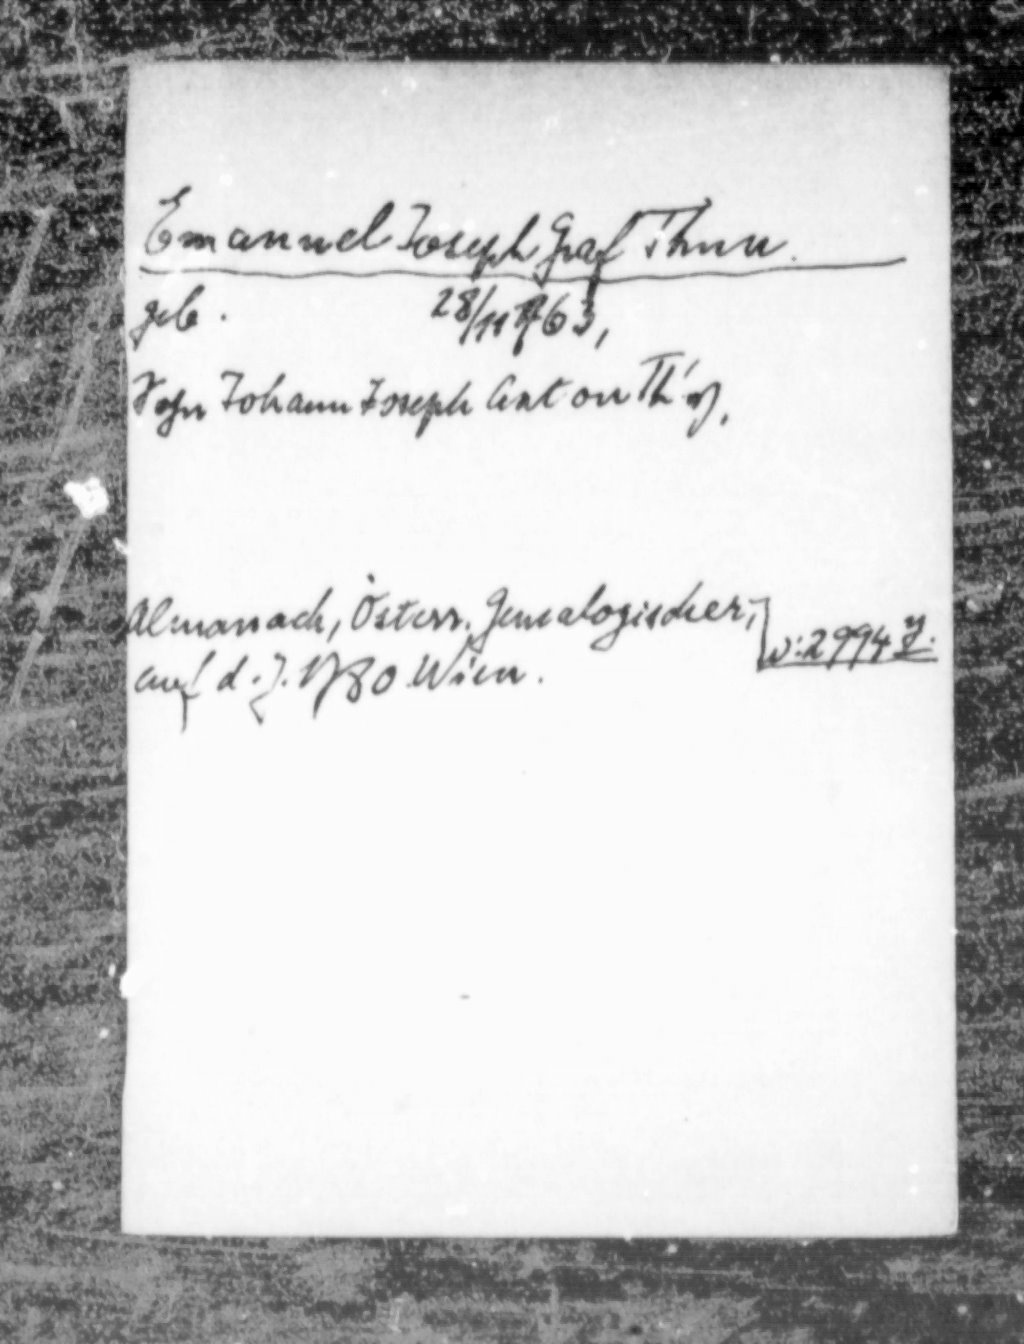 Emanuel Joseph Graf Thun.
geb. 28/11 1763,
Sohn Johann Joseph Anton Th's.
Almanach, Österr. Genealogischer,
auf d. J. 1780 Wien. 2994